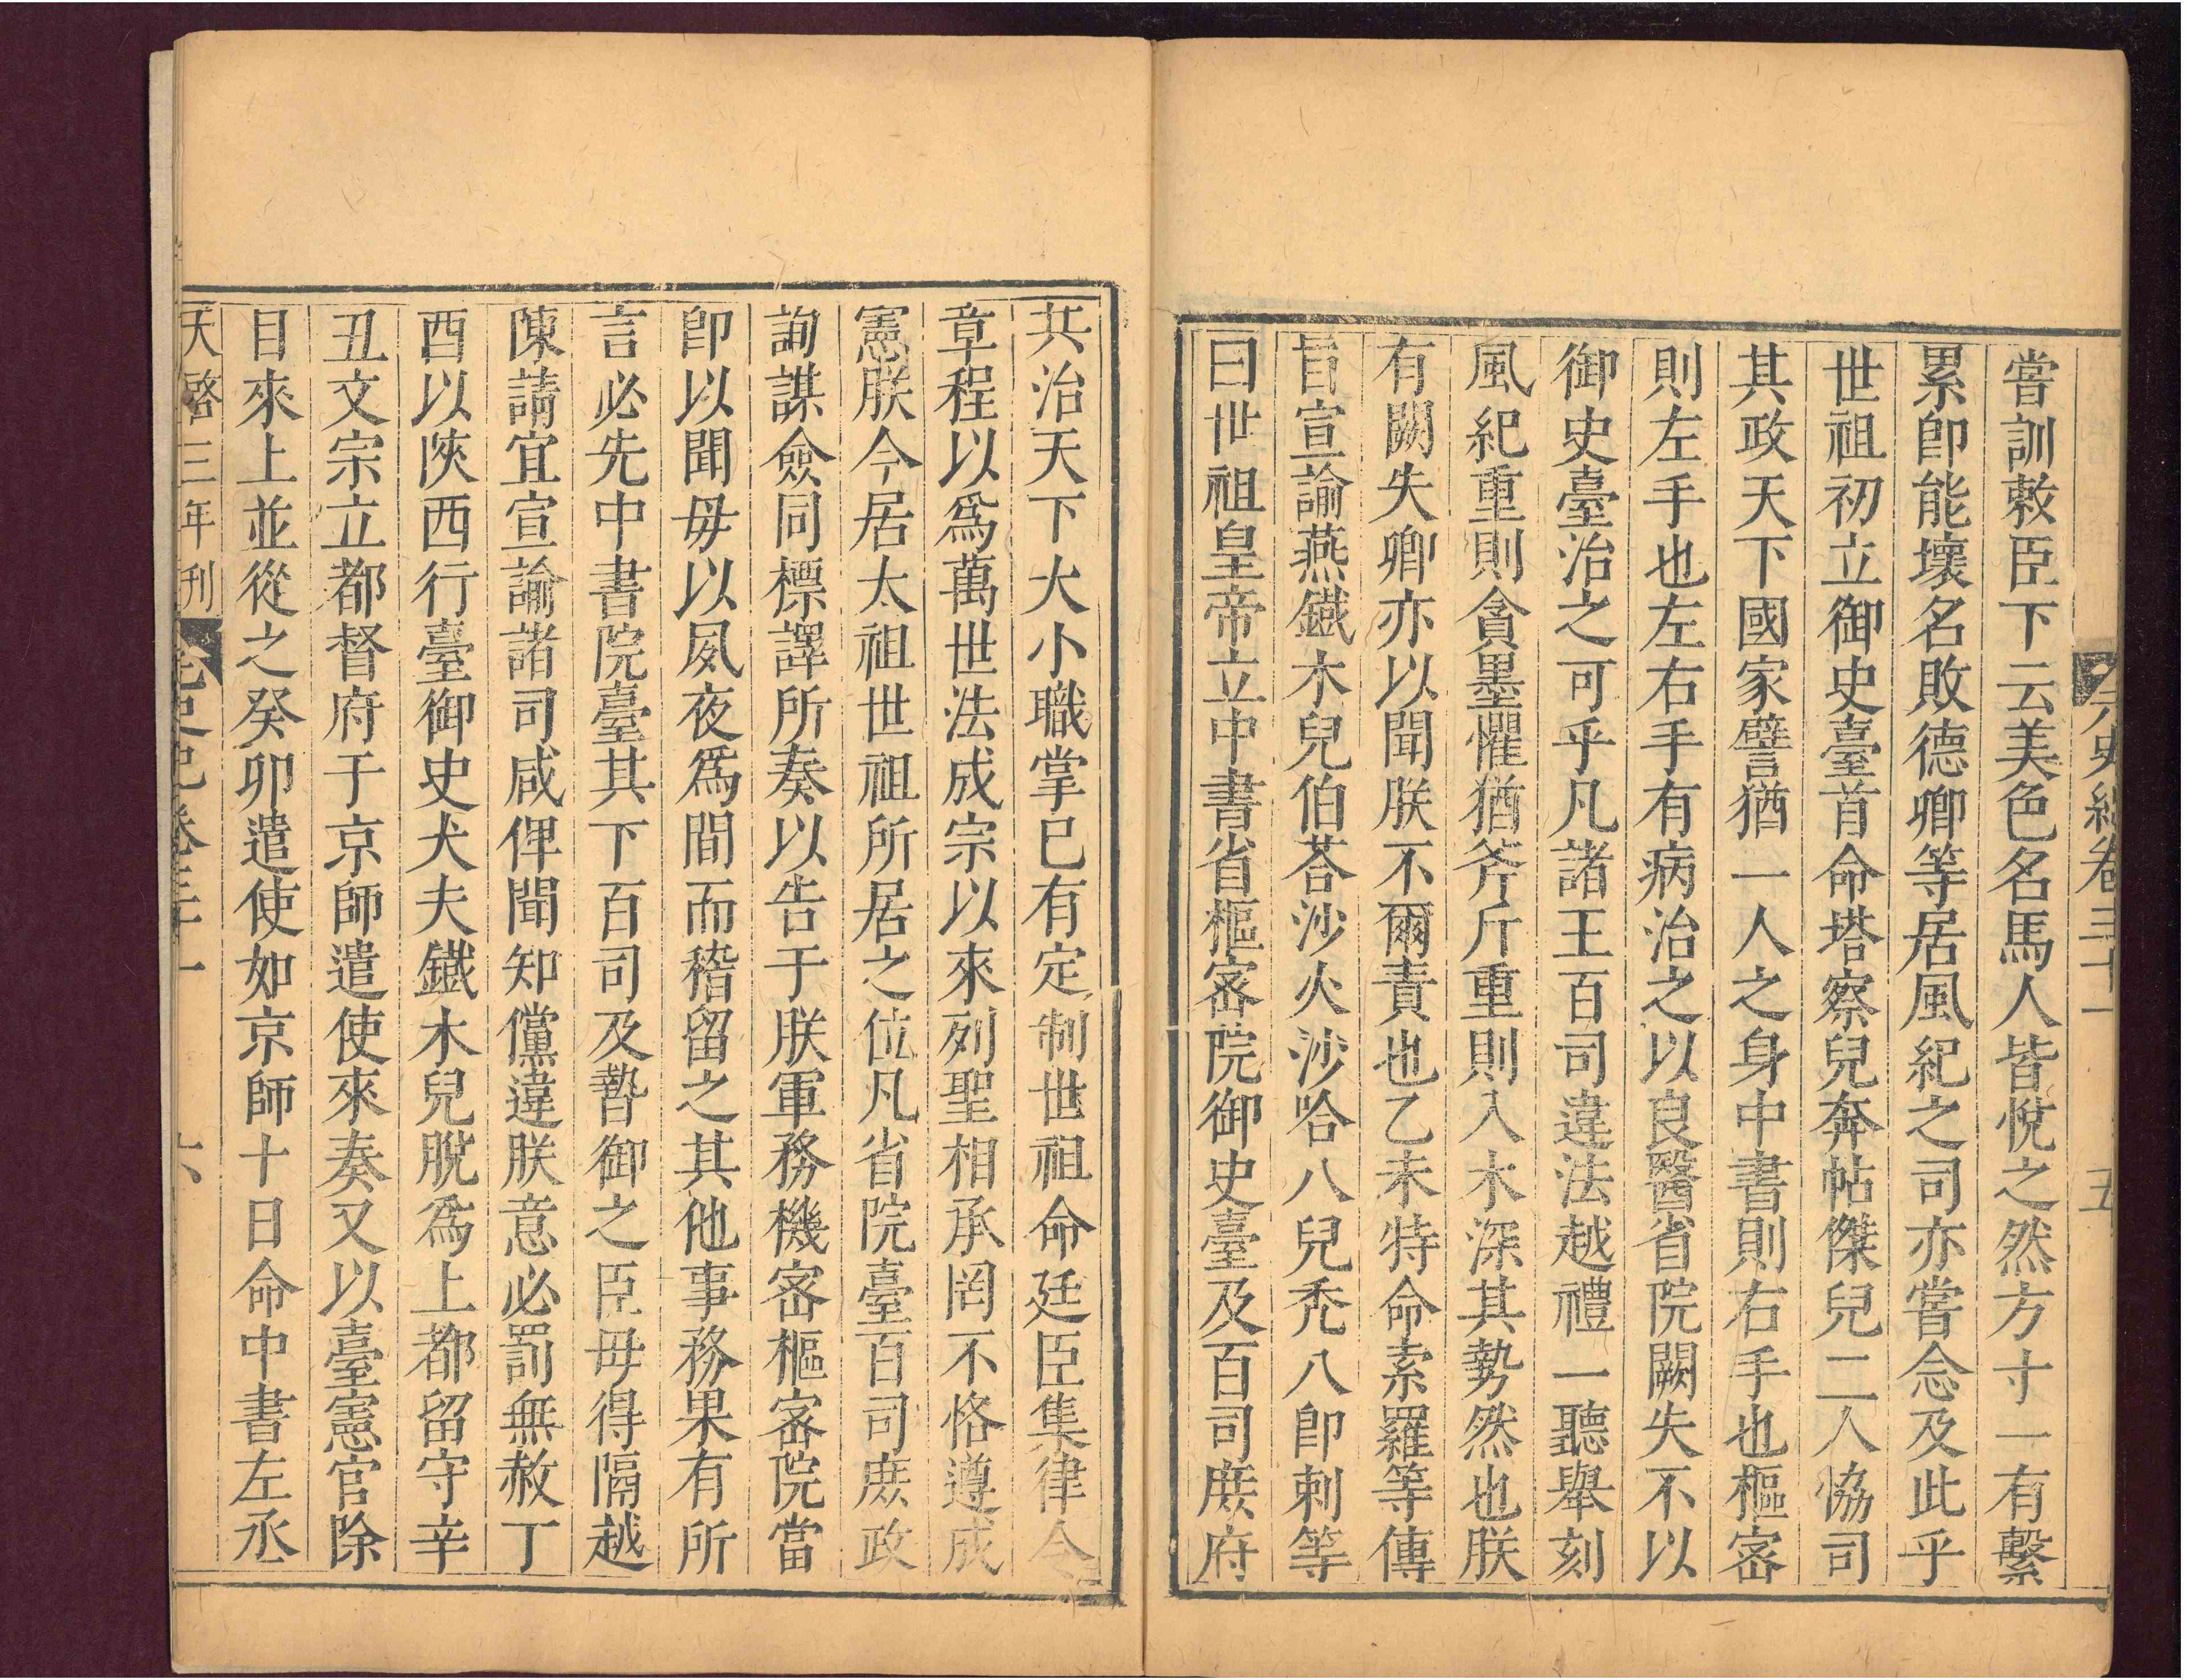 元史紀卷三十一 五
嘗訓敕臣下云美色名馬人皆悅之然方寸一有繫
累卽能壞名敗德卿等居風紀之司亦嘗念及此乎
世祖初立御史臺首命塔察兒奔帖傑兒二人恊司
其政天下國家譬猶一人之身中書則右手也樞宻
則左手也左右手有病治之以良醫省院闕失不以
御史臺治之可乎凡諸王百司違法越禮一聽舉刻
風紀重則貪墨懼猶斧斤重則入木深其勢然也朕
有闕失卿亦以聞朕不爾責也乙未特命索羅等傳
旨宣諭燕鐵木兒伯荅沙火沙哈八兒禿八卽剌等
曰世祖皇帝立中書省樞宻院御史臺及百司庻府
共治天下大小職掌已有定制世祖命廷臣集律令
章程以爲萬世法成宗以來列聖相承罔不恪遵成
憲朕今居太祖世祖所居之位凡省院臺百司庻政
詢謀僉同標譯所奏以告于朕軍務機宻樞宻院當
卽以聞毋以夙夜爲間而稽留之其他事務果有所
言必先中書院臺其下百司及暬御之臣毋得隔越
陳請宜宣諭諸司咸俾聞知儻違朕意必罰無赦丁
酉以陝西行臺御史大夫鐵木兒脫爲上都留守辛
丑文宗立都督府于京師遣使來奏又以臺憲官除
目來上並從之癸卯遣使如京師十日命中書左丞
天啓三年刊 元史紀卷三十一 六